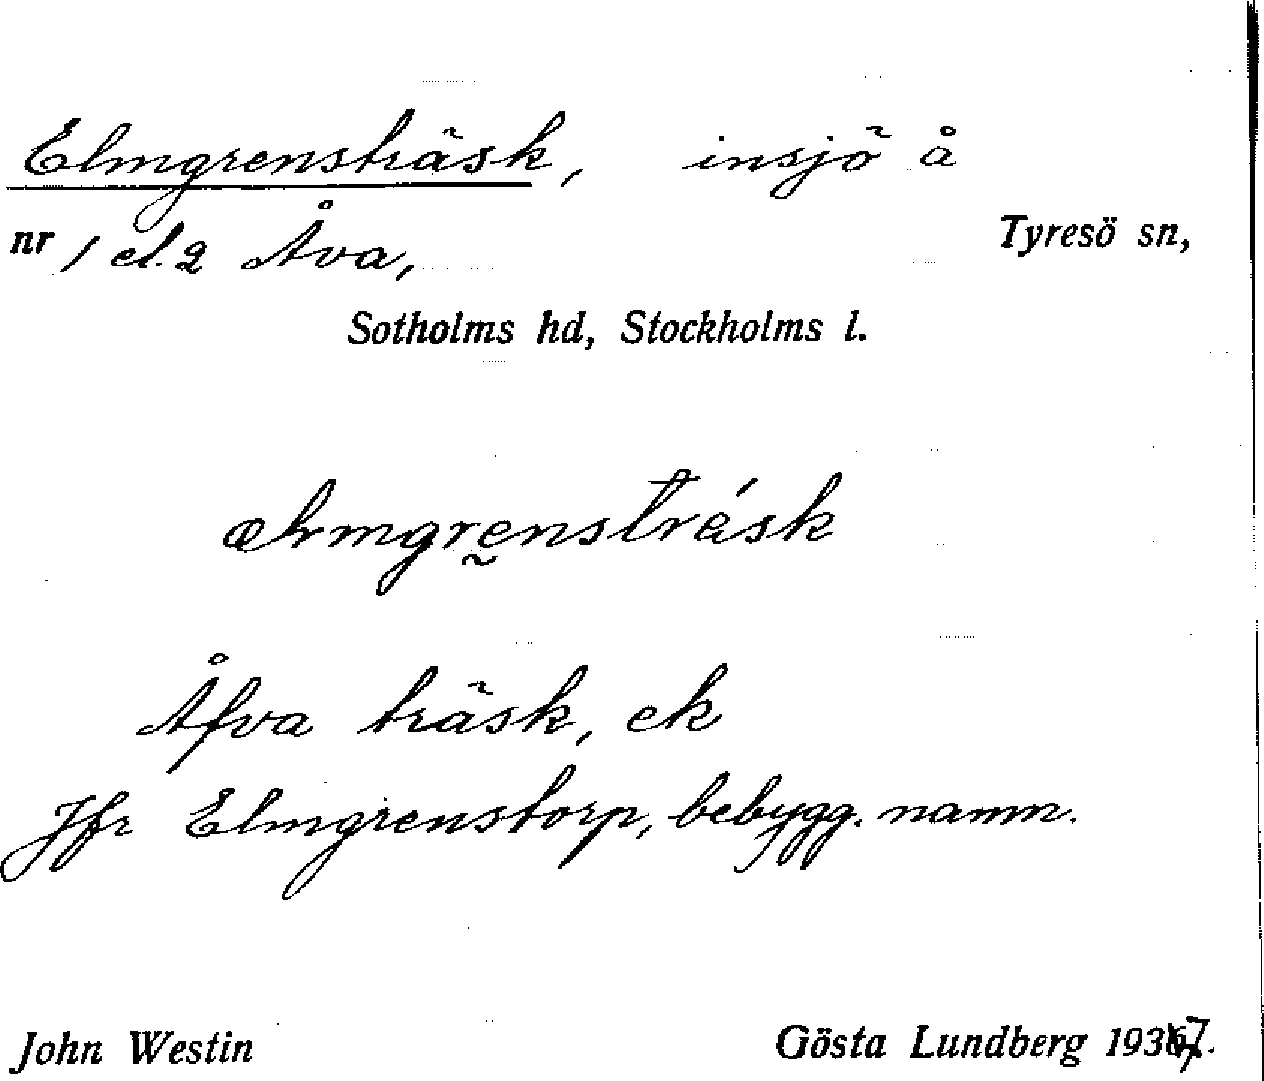 Elmgrensträsk, insjö å
nr 1 el. 2 Åva, Tyresö sn,
Sotholms hd, Stockholms l.
ælmgrensträ́sk
Åfva träsk, ek
Jfr Elmgrenstorp, bebygg. namn.
John Westin Gösta Lundberg 1937.